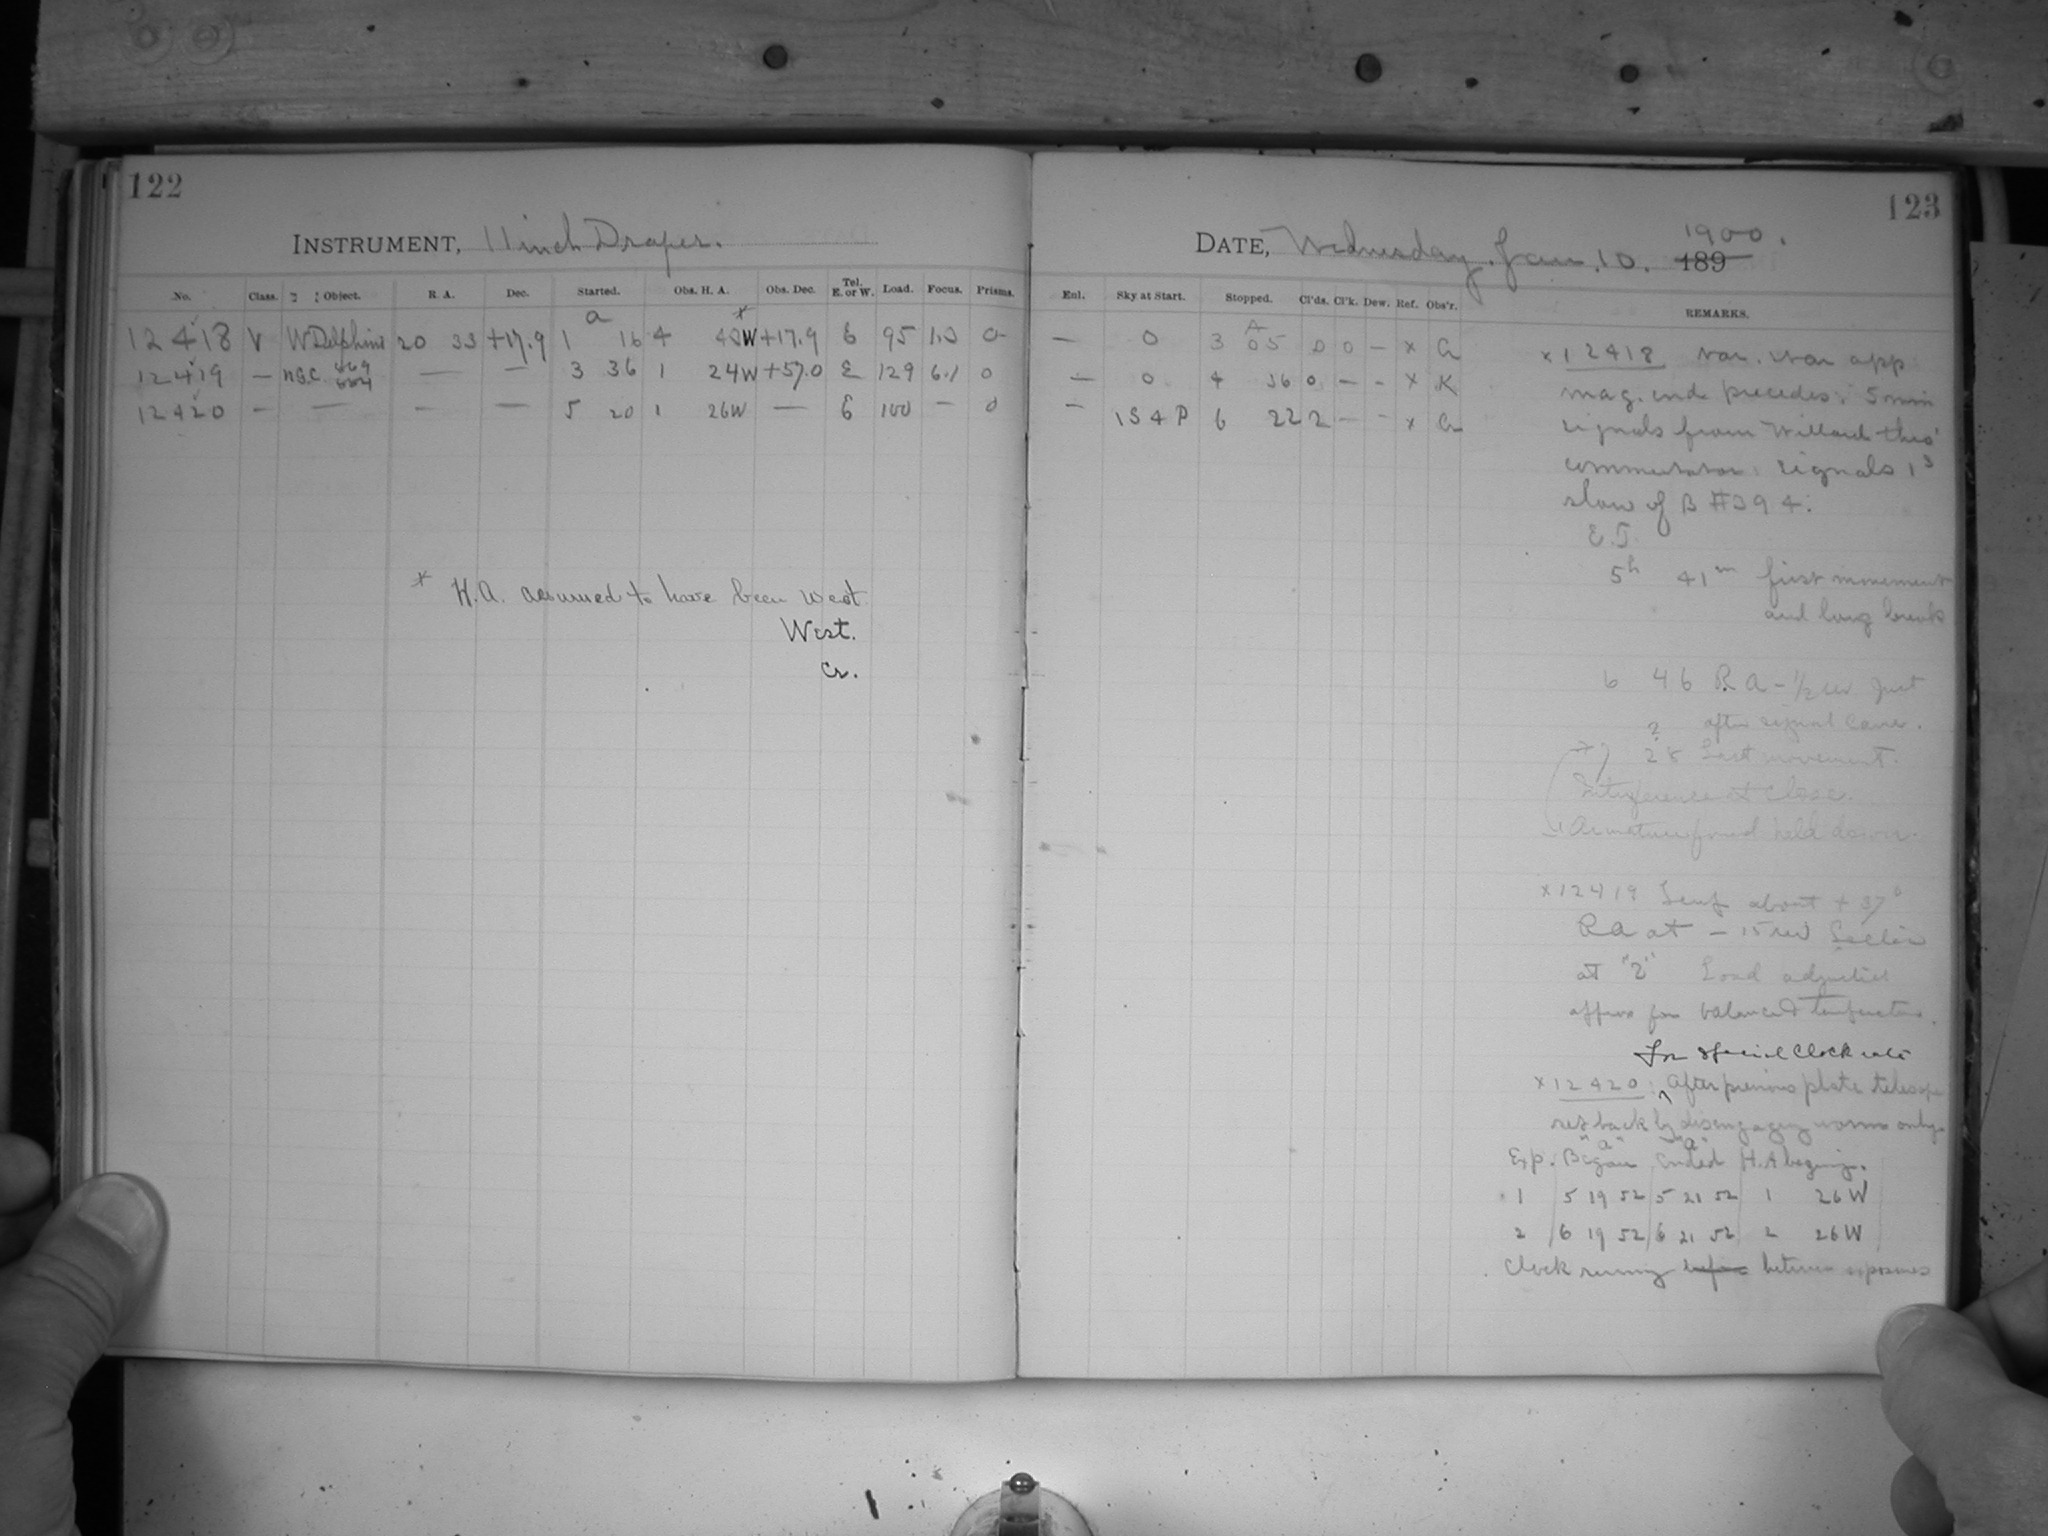 122
INSTRUMENT, 11 inch Draper.
No. Class. Object. R. A. Dec. Started. Obs. H. A. Obs. Dec. Tel. E. or W. Load. Focus. Prisms.
a *
12418 V W Delphini 20 33 +17.9 1 16 4 48W +17.9 E 95 1.0 0
12419 — N.G.C. 869 884 — — 3 36 1 24W +57.0 E 129 6.1 0
12420 — — — — 5 20 1 26W — E 100 — 0
* H.A. assumed to have been west
West.
Cr.
123
DATE, Wednesday. Jan. 10. 1900.
189
Enl. Sky at Start. Stopped. Cl'ds. Cl'k. Dew. Ref. Obs'r. REMARKS.
A
— 0 3 05 0 0 — x Cr
— 0 4 36 0 — - x K
— 1S4P 6 22 2 — - x Cr
x 12418 var. near app
mag. and precedes: 5 min
signals from Willard thro'
commutator: signals 1s
slow of B #394.
E.T.
5h 41m first movement
and long break
6 46 R.A - 1/2 rev just
after signal came.
?
7 28 Last movement.
Interference at close.
Armature found held down.
x 12419 Temp about + 37°
RA at - 15 rev
at "2" Load adjusted
approx for balanced temperature.
For special clock rate
x 12420: After previous plate telescope
set back by disengaging worm only.
"a" "a"
Exp. Began Ended H.A begin'g.
1 5 19 52 5 21 52 1 26W
2 6 19 52 6 21 52 2 26W
Clock running before between exposures